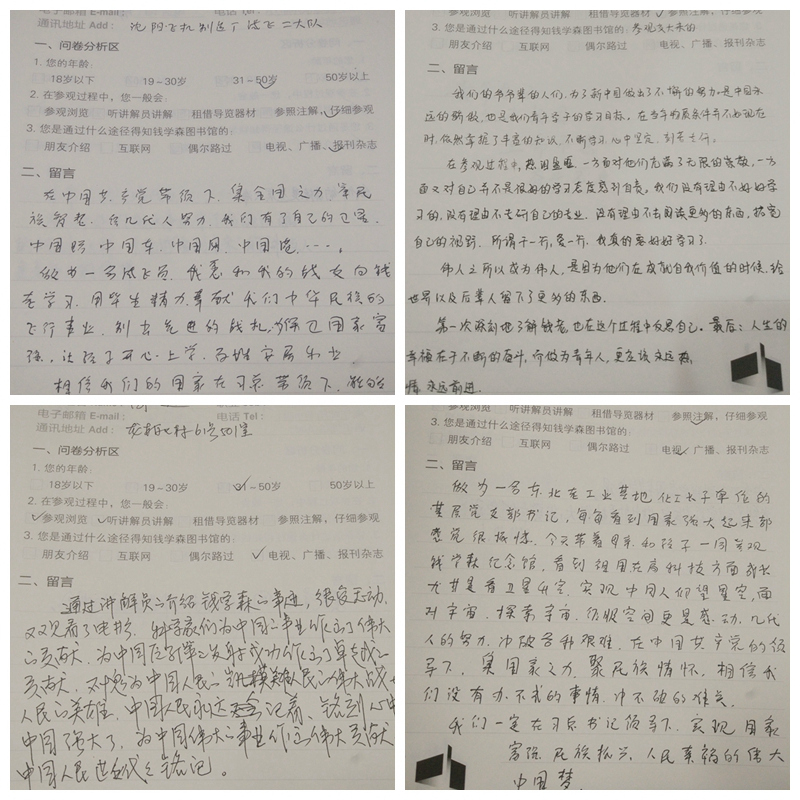 通讯地址 Add：沈阳飞机
一、问卷分析区
1. 您的年龄：
18岁以下 19～30岁 31～50岁 50岁以上
2. 在参观过程中，您一般会：
参观浏览 听讲解员讲解 租借导览器材 参照注解，仔细参观
3. 您是通过什么途径得知钱学森图书馆的：
朋友介绍 互联网 偶尔路过 电视、广播、报刊杂志
二、留言
在中国共产党带领下，集全国之力，举民
族智慧，在几代人努力，我们有了自己的卫星，
中国 中国车，中国网，中国造，…。
做为一名试飞员，我愿和我的战友向钱
老学习，用毕生精力奉献我们中华民族的
飞行事业，别出先进的战机，保卫国家富
强，让孩子开心上学，百姓安居乐业。
相信我们的国家在习总带领下，能的
参观浏览 听讲解员讲解 租借导览器材 参照注解，仔细参观
3. 您是通过什么途径得知钱学森图书馆的：参观交大来的
朋友介绍 互联网 偶尔路过 电视、广播、报刊杂志
二、留言
我们的爷爷辈的人们，为了新中国做出了不懈的努力，是中国永
远的骄傲，也是我们青年学子的学习目标。在当年物质条件并不如现在
时，依然掌握了丰富的知识，不断学习，心中坚定，刻苦
在参观过程中，热泪盈眶，一方面对他们充满了无限的崇敬，一方
面又对自己并不是很好的学习态度感到自责。我们没有理由不好好学
习的，没有理由不去研自己的专业，没有理由不去阅读更多的东西，拓宽
自己的视野，所谓干一行，爱一行，我真的要好好学习了。
伟人之所以成为伟人，是因为他们在成就自我价值的时候，给
世界以及后辈人留下了更多的东西。
第一次深刻地了解钱老，也在这个过程中反思自己。最后：人生的
幸福在于不断的奋斗，而做为青年人，更应该永远热
情，永远前进。
电子邮箱 E-mail： 电话 Tel：
通讯地址 Add： 61号501室
一、问卷分析区
1. 您的年龄：
18岁以下 19～30岁 31～50岁 50岁以上
2. 在参观过程中，您一般会：
参观浏览 听讲解员讲解 租借导览器材 参照注解，仔细参观
3. 您是通过什么途径得知钱学森图书馆的：
朋友介绍 互联网 偶尔路过 电视、广播、报刊杂志
二、留言
通过讲解员的介绍钱学森的事迹，很受感动，
又观看了电影，科学家们为中国的事业作出了伟大
的贡献，为中国 发射成功作出了卓越的
贡献，不愧为中国人民的 模 人民的伟大战士
人民的英雄，中国人民永远 记着、铭刻心中
中国强大了，为中国伟大的事业作出伟大贡献
中国人民世世代代铭记。
参观浏览 听讲解员讲解 租借导览器材 参照注解，仔细参观
3. 您是通过什么途径得知钱学森图书馆的：
朋友介绍 互联网 偶尔路过 电视、广播、报刊杂志
二、留言
做为一名东北老工业基地化工水子单位的
基层党支部书记，每每看到国家强大起来都
感觉很振憾，今天带着母亲和孩子一同参观
钱学森纪念馆，看到祖国在高科技方面成长
尤其是看卫星升空，实现中国人仰望星空，面
对宇宙，探索宇宙，征服空间更是感动，几代
人的努力，冲破各种艰难，在中国共产党的领
导下，集国家之力，聚民族情怀，相信我
们没有办不成的事情，冲不破的难关。
我们一定在习总书记领导下，实现国家
富强，民族振兴，人民幸福的伟大
中国梦。